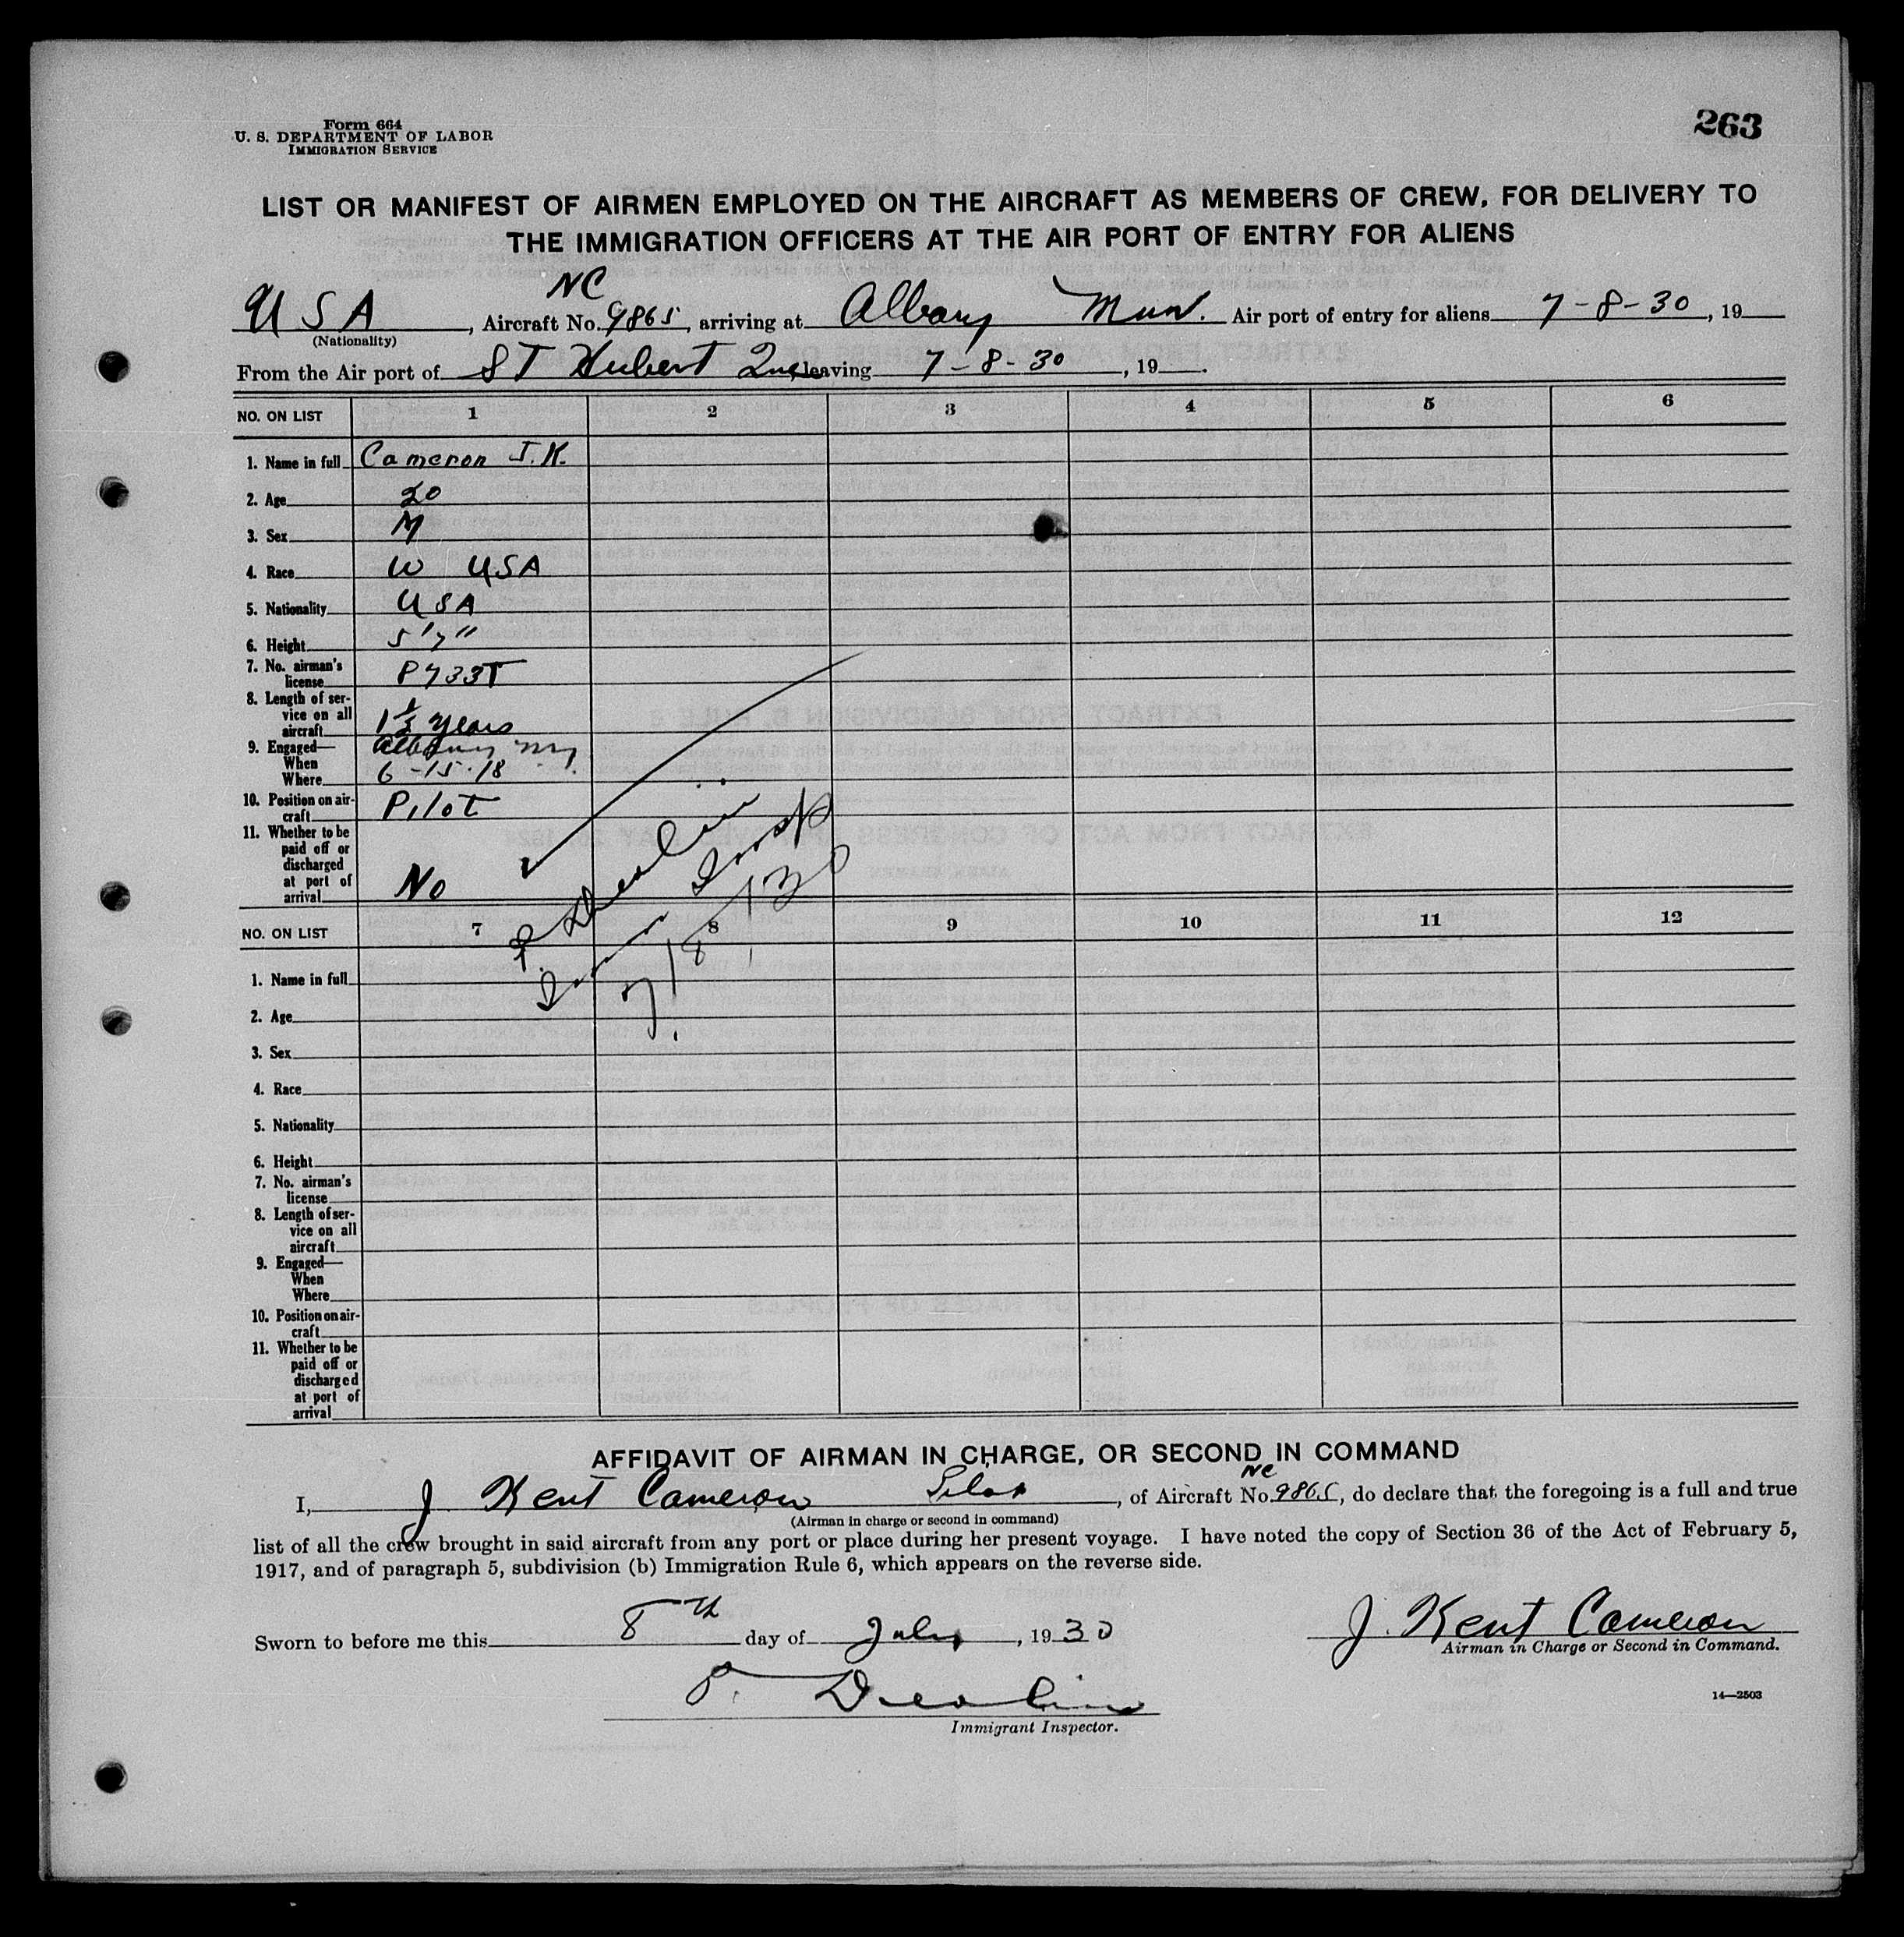 Form 664
U. S. DEPARTMENT OF LABOR
IMMIGRATION SERVICE
263
LIST OR MANIFEST OF AIRMEN EMPLOYED ON THE AIRCRAFT AS MEMBERS OF CREW, FOR DELIVERY TO
THE IMMIGRATION OFFICERS AT THE AIR PORT OF ENTRY FOR ALIENS
NC
USA, Aircraft No. 9865, arriving at Albany Mun. Air port of entry for aliens 7-8-30, 19
(Nationality)
From the Air port of ST Hubert Que, leaving 7-8-30, 19.
NO. ON LIST 1 2 3 4 5 6
1. Name in full Cameron J. K.
2. Age 20
3. Sex M
4. Race W USA
5. Nationality USA
6. Height 5'7"
7. No. airman's
license P733T
8. Length of ser-
vice on all
aircraft 1½ years
9. Engaged— Albany NY
When
Where 6-15-18
10. Position on air-
craft Pilot
11. Whether to be
paid off or
discharged
at port of
arrival No
Insp
7/8/30
NO. ON LIST 7 8 9 10 11 12
1. Name in full
2. Age
3. Sex
4. Race
5. Nationality
6. Height
7. No. airman's
license
8. Length of ser-
vice on all
aircraft
9. Engaged—
When
Where
10. Position on air-
craft
11. Whether to be
paid off or
discharged
at port of
arrival
AFFIDAVIT OF AIRMAN IN CHARGE, OR SECOND IN COMMAND
NC
I, J Kent Cameron Pilot, of Aircraft No. 9865, do declare that the foregoing is a full and true
(Airman in charge or second in command)
list of all the crew brought in said aircraft from any port or place during her present voyage. I have noted the copy of Section 36 of the Act of February 5,
1917, and of paragraph 5, subdivision (b) Immigration Rule 6, which appears on the reverse side.
Sworn to before me this 8th day of July, 1930
J. Kent Cameron
Airman in Charge or Second in Command.
Immigrant Inspector.
14—2503